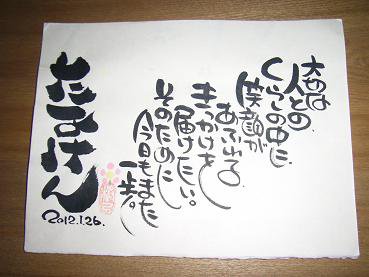 大切な
人との
くらしの中に
笑顔が
あふれる
きっかけを
届けたい。
そのために
今日もまた
一歩。
たまけん
2012.1.26.